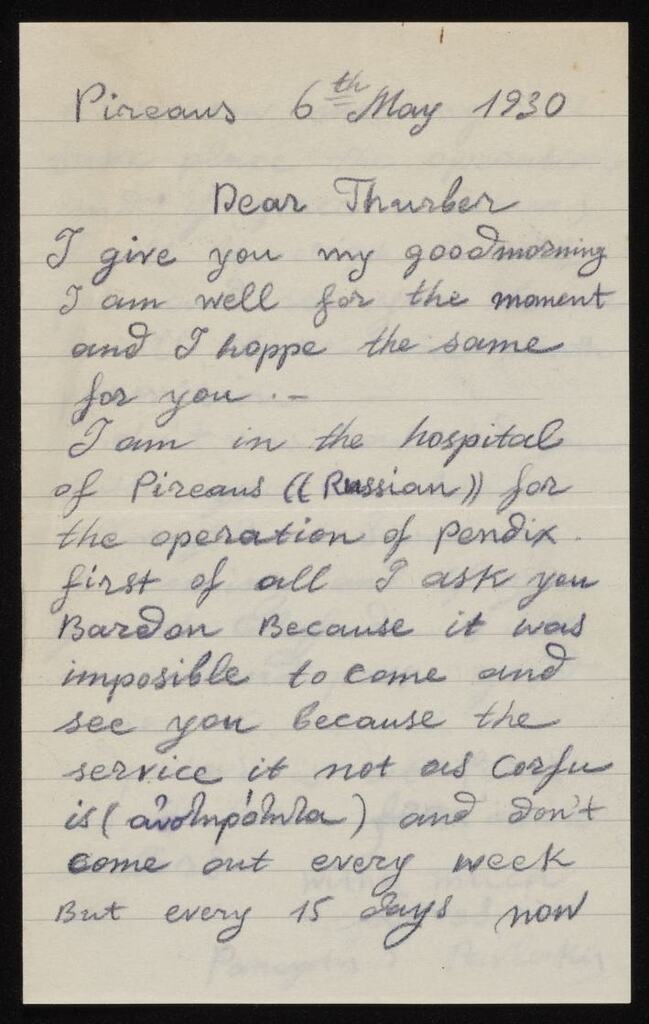 Pireaus 6th May 1930
Dear Thurber
I give you my goodmorning
I am well for the moment
and I hoppe the same
for you . –
I am in the hospital
of Pireaus (( Russian )) for
the operation of Pendix .
first of all I ask you
Bardon Because it was
imposible to come and
see you because the
service it not as Corfu
is ( αὐστηρότητα ) and don't
come out every week
But every 15 days now